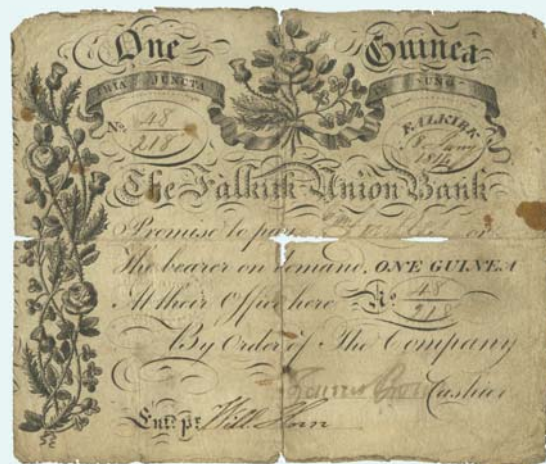 One Guinea
TRIA JUNCTA IN UNO
No. 48/218
FALKIRK
1814
The Falkirk Union Bank
Promise to pay or
The bearer on demand, ONE GUINEA
At their Office here No 48/218
By Order of The Company
James Cashier
Ent. pr. Will. Horn